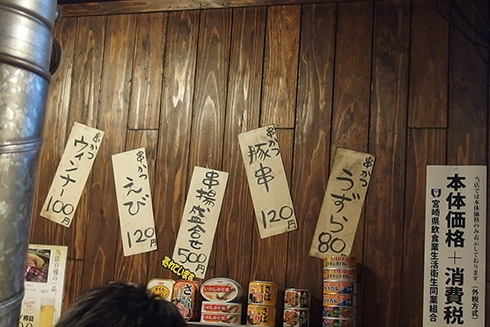 串かつ
ウィンナー
100円
串かつ
えび
120円
串揚盛合せ
500円
豚串
120円
串かつ
うずら
80
当店では本体価格のみ表示しております「外税方式」
本体価格+消費税
宮崎県飲食業生活衛生同業組合